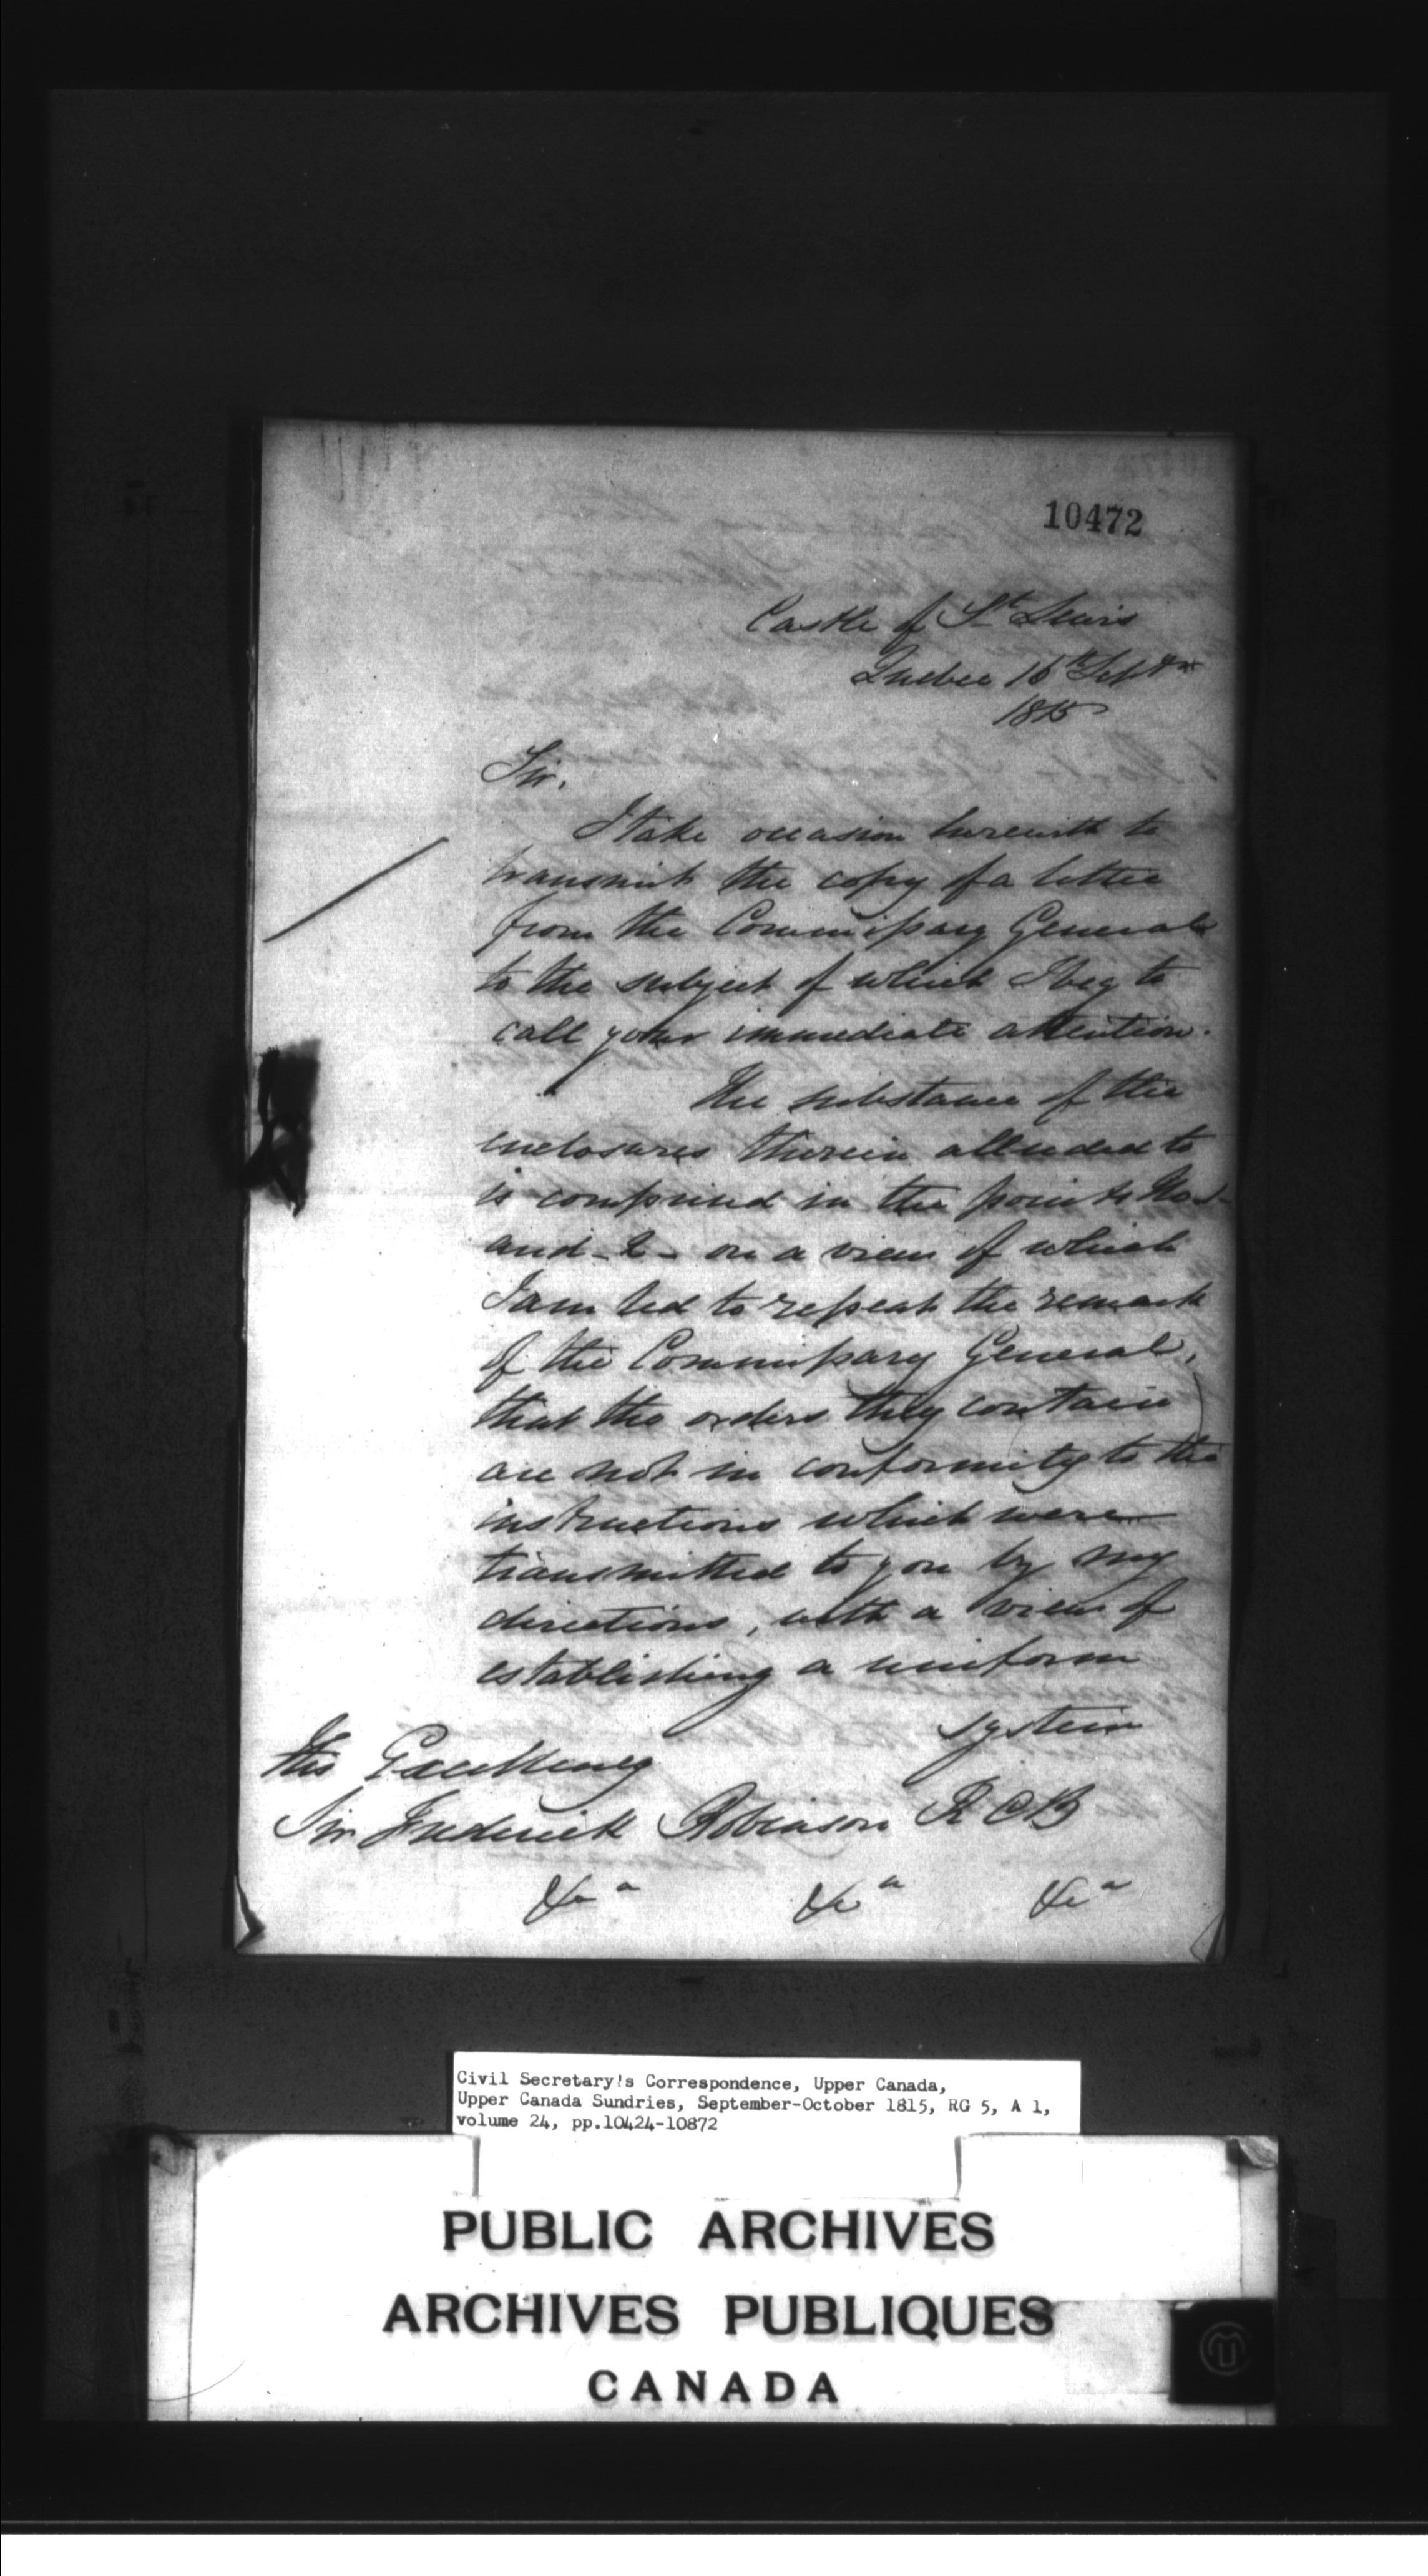 10472
Castle of St Lewis
Quebec 16th Septr
1815
Sir,
I take occasion herewith to
transmit the copy of a letter
from the Commissary General
to the subject of which I beg to
call your immediate attention.
The substance of the
enclosures therein alluded to
is comprised in the points No 1
and - 2 - on a view of which
I am led to repeat the remark
of the Commissary General,
that the orders they contain
are not in conformity to the
instructions which were
transmitted to you by my
directions, with a view of
establishing a uniform
system
His Excellency
Sir Frederick Robinson KCB
&ca &ca &ca
Civil Secretary's Correspondence, Upper Canada,
Upper Canada Sundries, September-October 1815, RG 5, A 1,
volume 24, pp.10424-10872
PUBLIC ARCHIVES
ARCHIVES PUBLIQUES
CANADA